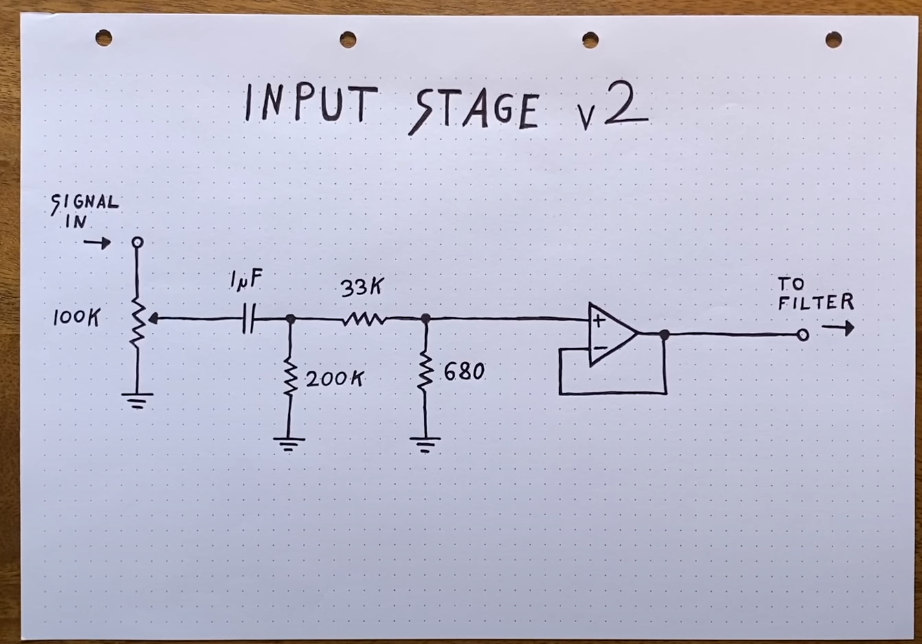 INPUT STAGE v2
SIGNAL
IN
100K
1μF
33K
200K
680
+
−
TO
FILTER